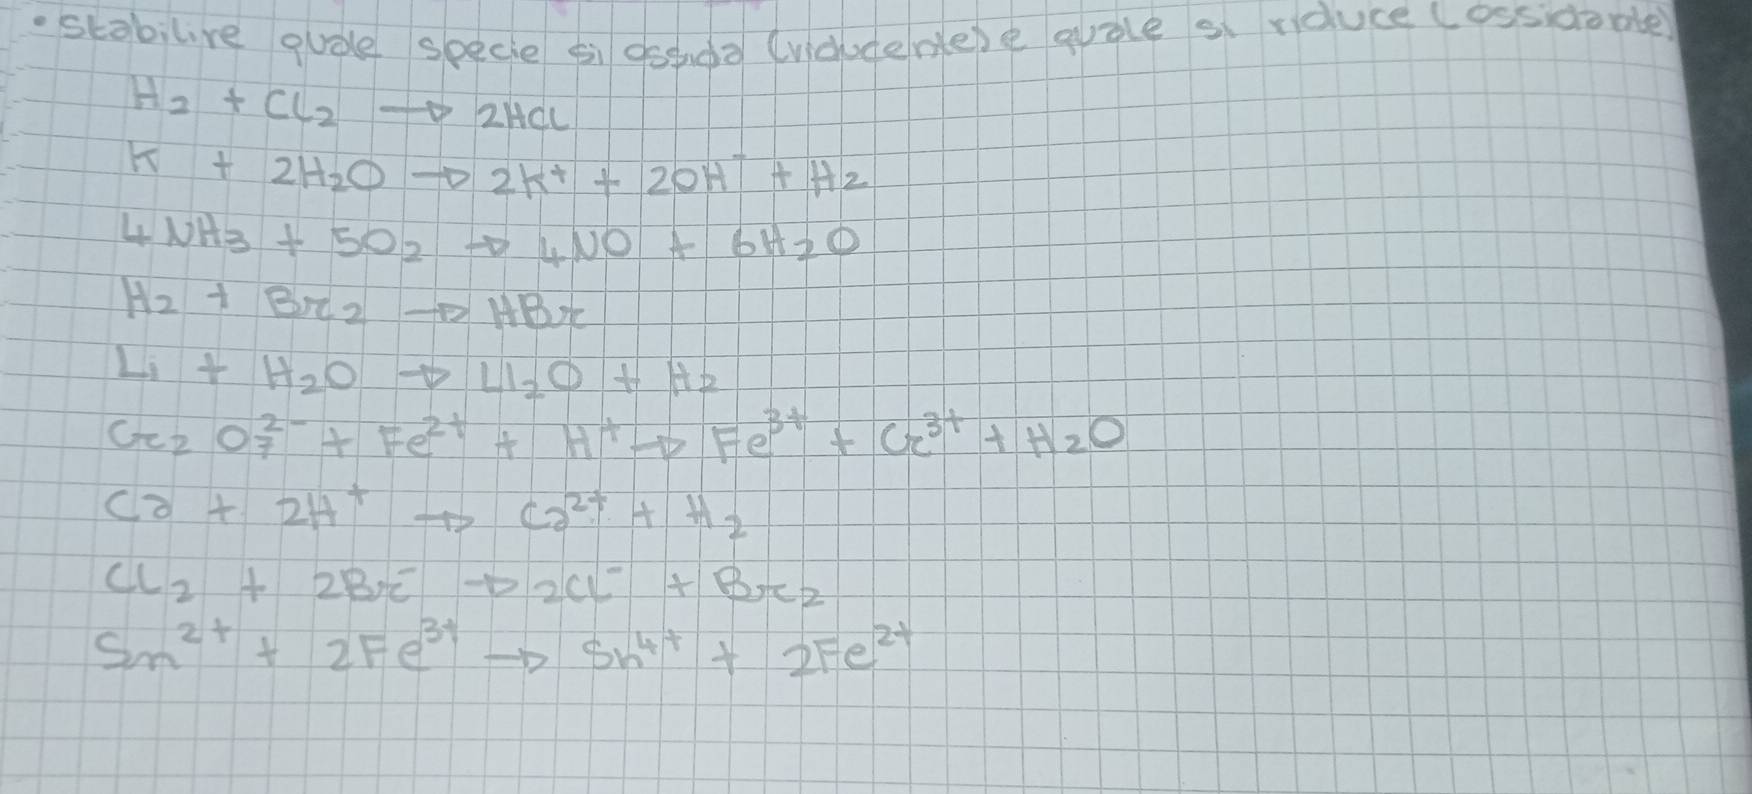 • stabilire quale specie si ossida (riducente) e quale si riduce (ossidante)
H₂ + Cl₂ → 2HCl
K + 2H₂O → 2K⁺ + 2OH⁻ + H₂
4NH₃ + 5O₂ → 4NO + 6H₂O
H₂ + Br₂ → HBr
Li + H₂O → Li₂O + H₂
Cr₂O₇²⁻ + Fe²⁺ + H⁺ → Fe³⁺ + Cr³⁺ + H₂O
Ca + 2H⁺ → Ca²⁺ + H₂
Cl₂ + 2Br⁻ → 2Cl⁻ + Br₂
Sn²⁺ + 2Fe³⁺ → Sn⁴⁺ + 2Fe²⁺